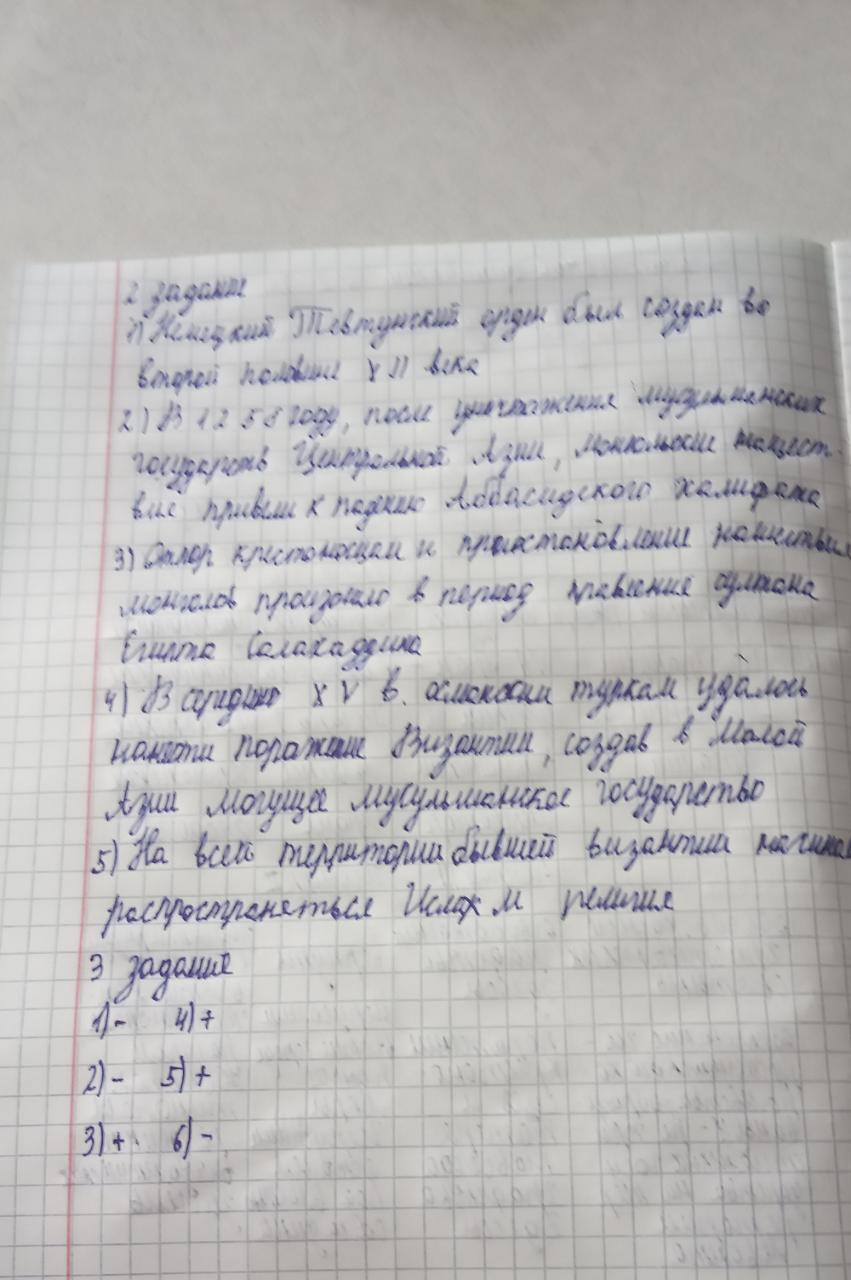 2 задание
1) Немецкий Тевтунский орден был создан во
второй половине XII века
2) В 1258 году, после уничтажения мусульманских
государств Центральной Азии, монгольские нашест-
вие привели к падению Аббасидского халифата
3) Отпор крестоносцам и приостановление нашествия
монголов произошло в период правление султана
Египта Салахаддина
4) В середине XV в. османским туркам удалось
нанести поражение Византии, создав в Малой
Азии могущее мусульманское государство
5) На всей территории бывшей византии
распространяться Ислам религия
3 задание
1) - 4) +
2) - 5) +
3) + 6) -